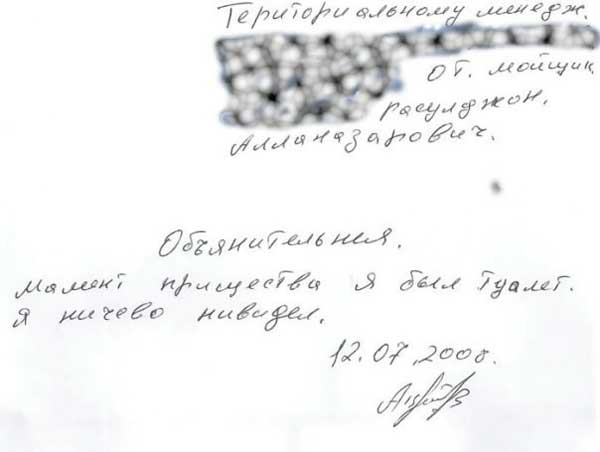 Териториальному менедж.
от. мойщик
расулджон.
Алланазарович.
Объянительня.
мамент прищества я был туалет.
я ничево нивидел.
12.07.2008.